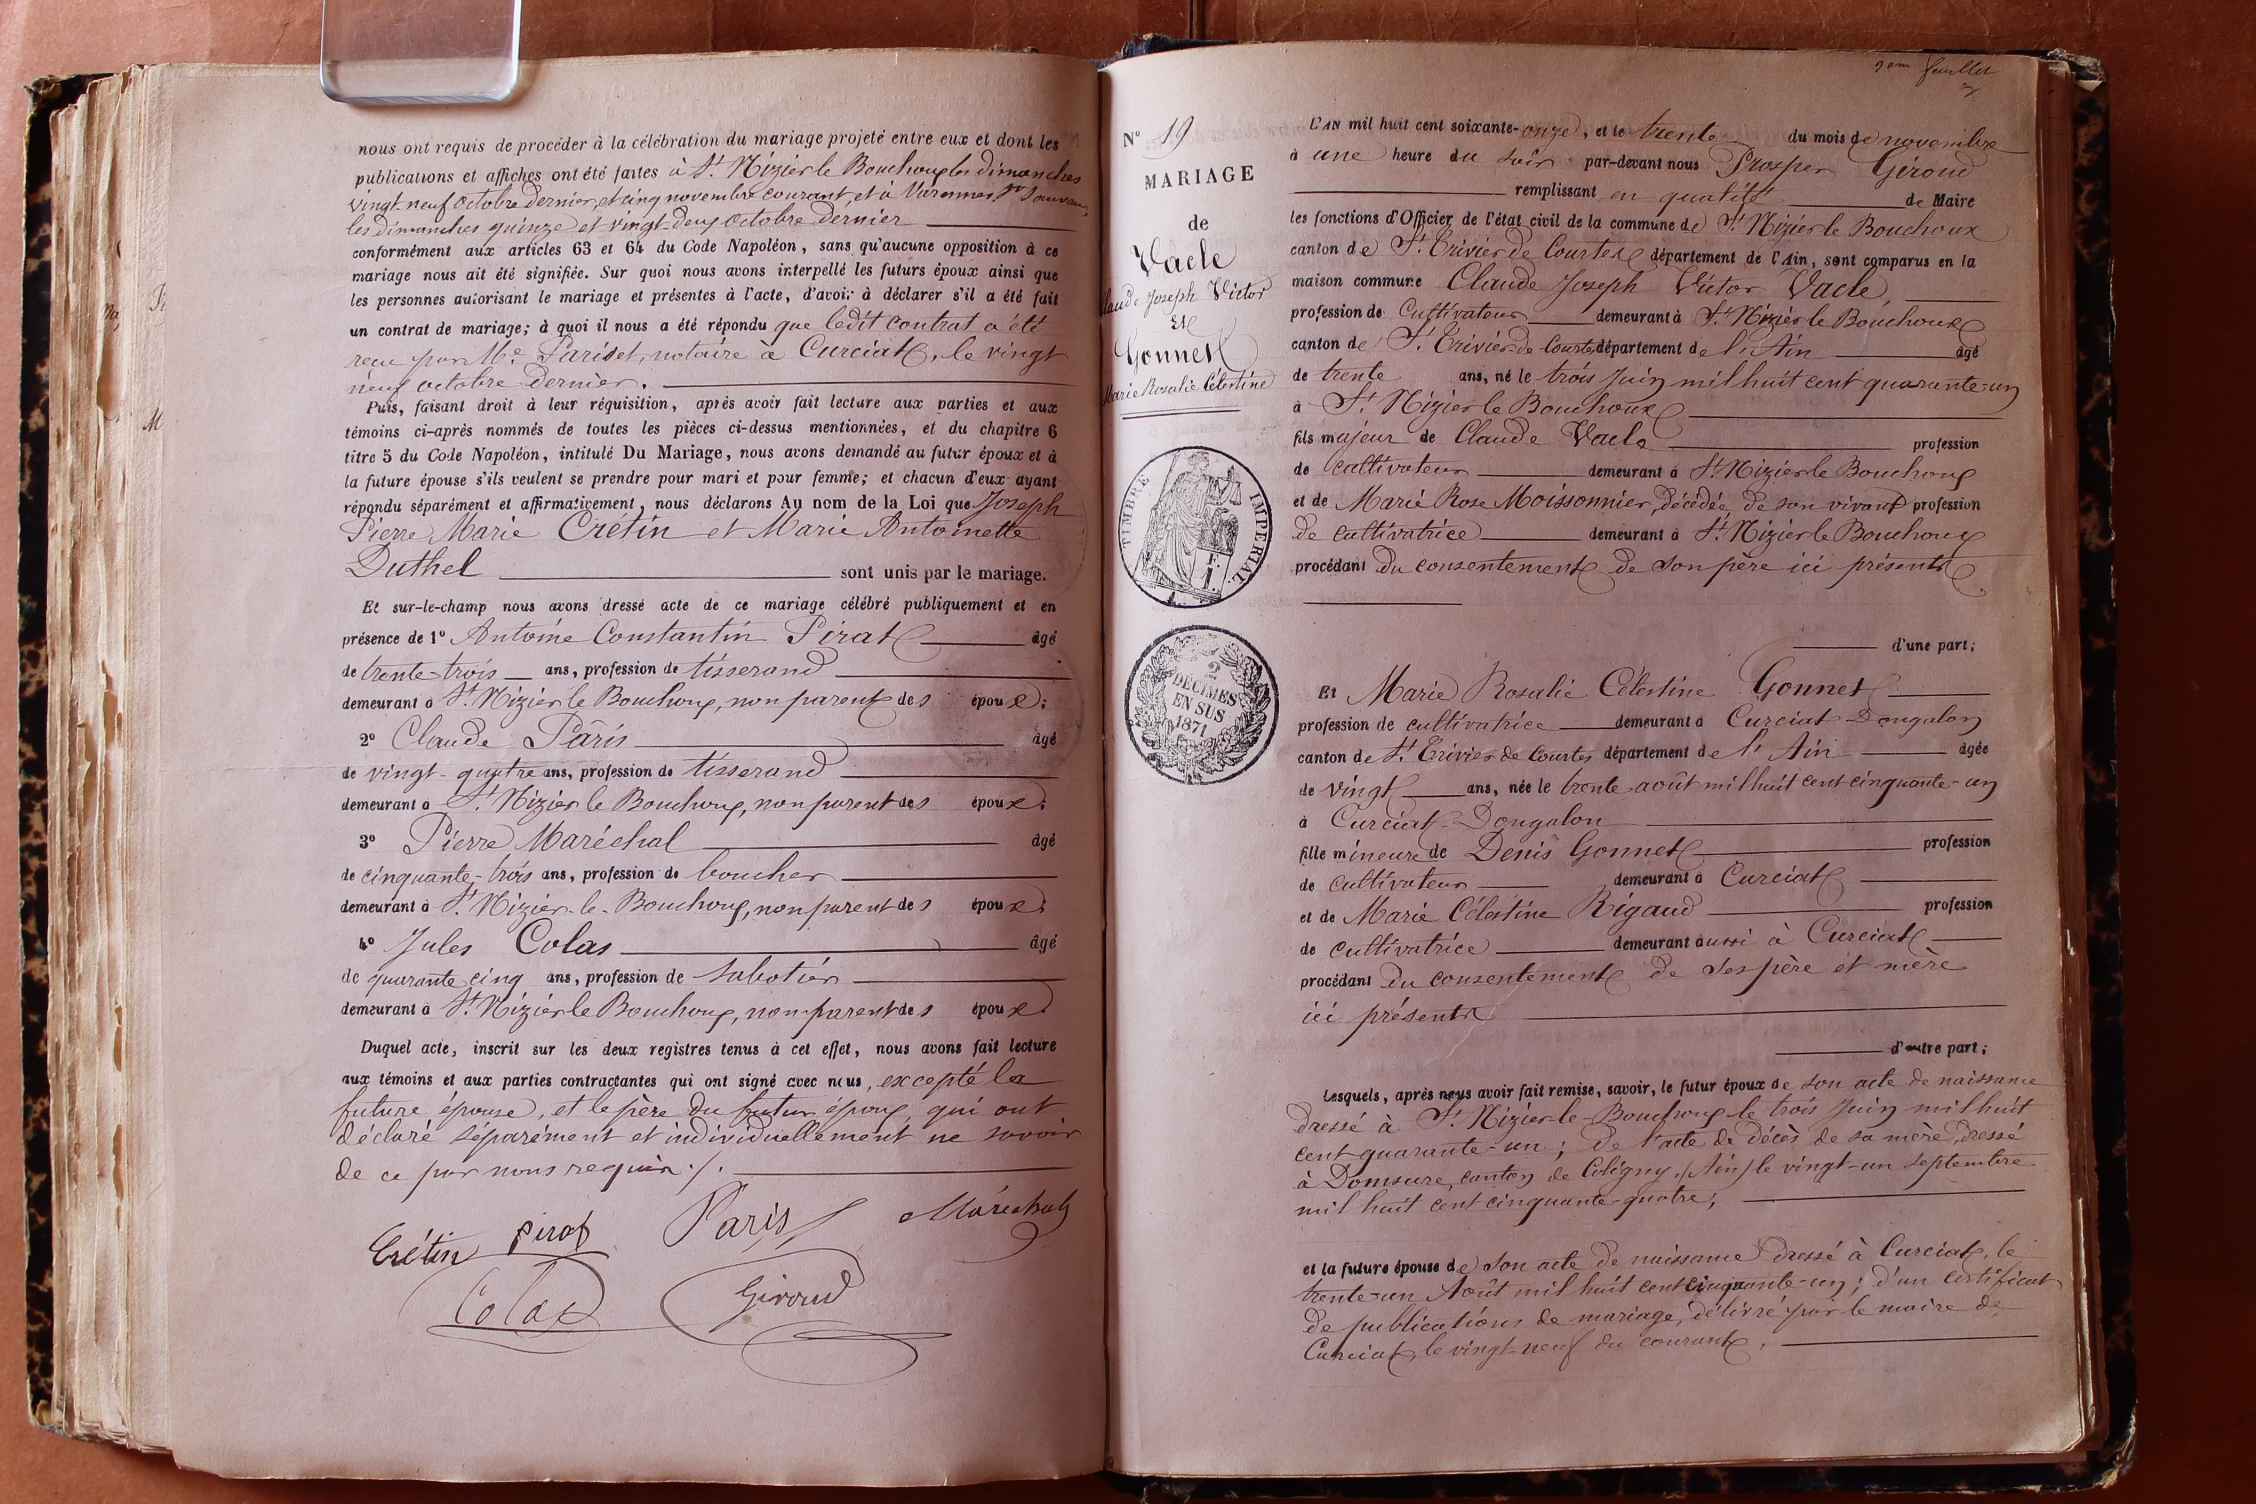 nous ont requis de procéder à la célébration du mariage projeté entre eux et dont les
publications et affiches ont été faites à St. Nizier le Bouchoux les dimanches
vingt neuf octobre dernier, et cinq novembre courant, et à Varennes St Sauveur,
les dimanches quinze et vingt-deux octobre dernier
conformément aux articles 63 et 64 du Code Napoléon, sans qu'aucune opposition à ce
mariage nous ait été signifiée. Sur quoi nous avons interpellé les futurs époux ainsi que
les personnes autorisant le mariage et présentes à l'acte, d'avoir à déclarer s'il a été fait
un contrat de mariage; à quoi il nous a été répondu que ledit contrat a été
reçu par Me Pariset, notaire à Curciat, le vingt
neuf octobre dernier.
Puis, faisant droit à leur réquisition, après avoir fait lecture aux parties et aux
témoins ci-après nommés de toutes les pièces ci-dessus mentionnées, et du chapitre 6
titre 5 du Code Napoléon, intitulé Du Mariage, nous avons demandé au futur époux et à
la future épouse s'ils veulent se prendre pour mari et pour femme; et chacun d'eux ayant
répondu séparément et affirmativement, nous déclarons Au nom de la Loi que Joseph
Pierre Marie Crétin et Marie Antoinette
Duthel sont unis par le mariage.
Et sur-le-champ nous avons dressé acte de ce mariage célébré publiquement et en
présence de 1° Antoine Constantin Pirat âgé
de trente-trois ans, profession de tisserand
demeurant à St. Nizier le Bouchoux, non parent des époux;
2° Claude Pâris âgé
de vingt-quatre ans, profession de tisserand
demeurant à St. Nizier le Bouchoux, non parent des époux;
3° Pierre Maréchal âgé
de cinquante-trois ans, profession de boucher
demeurant à St. Nizier-le-Bouchoux, non parent des époux;
4° Jules Colas âgé
de quarante cinq ans, profession de sabotier
demeurant à St. Nizier le Bouchoux, non parent des époux
Duquel acte, inscrit sur les deux registres tenus à cet effet, nous avons fait lecture
aux témoins et aux parties contractantes qui ont signé avec nous, excepté la
future épouse, et le père du futur époux, qui ont
déclaré séparément et individuellement ne savoir
de ce par nous requis ./.
Crétin Pirat Paris Maréchal
Colas Giroud
2em feuillet
N° 19
MARIAGE
de
Vacle
Claude Joseph Victor
et
Gonnet
Marie Rosalie Célestine
TIMBRE IMPERIAL
F.
1.
2
DECIMES
EN SUS
1871
L'AN mil huit cent soixante-onze, et le trente du mois de novembre
à une heure du soir par-devant nous Prosper Giroud
remplissant en qualité de Maire
les fonctions d'Officier de l'état civil de la commune de St. Nizier le Bouchoux
canton de St. Trivier de Courtes département de l'Ain, sont comparus en la
maison commune Claude Joseph Victor Vacle,
profession de Cultivateur demeurant à St. Nizier le Bouchoux
canton de St. Trivier de Courtes département de l'Ain âgé
de trente ans, né le trois Juin mil huit cent quarante-un
à St. Nizier le Bouchoux
fils majeur de Claude Vacle profession
de cultivateur demeurant à St. Nizier le Bouchoux
et de Marie Rose Moissonnier, décédée, de son vivant profession
de cultivatrice demeurant à St. Nizier le Bouchoux
procédant du consentement de son père ici présent
d'une part;
Et Marie Rosalie Célestine Gonnet
profession de cultivatrice demeurant à Curciat-Dongalon
canton de St. Trivier de Courtes département de l'Ain âgée
de vingt ans, née le trente août mil huit cent cinquante-un
à Curciat-Dongalon
fille mineure de Denis Gonnet profession
de cultivateur demeurant à Curciat
et de Marie Célestine Rigaud profession
de cultivatrice demeurant aussi à Curciat
procédant du consentement de ses père et mère
ici présents
d'autre part;
Lesquels, après nous avoir fait remise, savoir, le futur époux de son acte de naissance
dressé à St. Nizier-le-Bouchoux le trois Juin mil huit
cent quarante-un; de l'acte de décès de sa mère, dressé
à Domsure, canton de Coligny (Ain) le vingt-un septembre
mil huit cent cinquante-quatre;
et la future épouse de son acte de naissance dressé à Curciat, le
trente-un Août mil huit cent cinquante-un; d'un certificat
de publications de mariage, délivré par le maire de
Curciat, le vingt-neuf du courant.